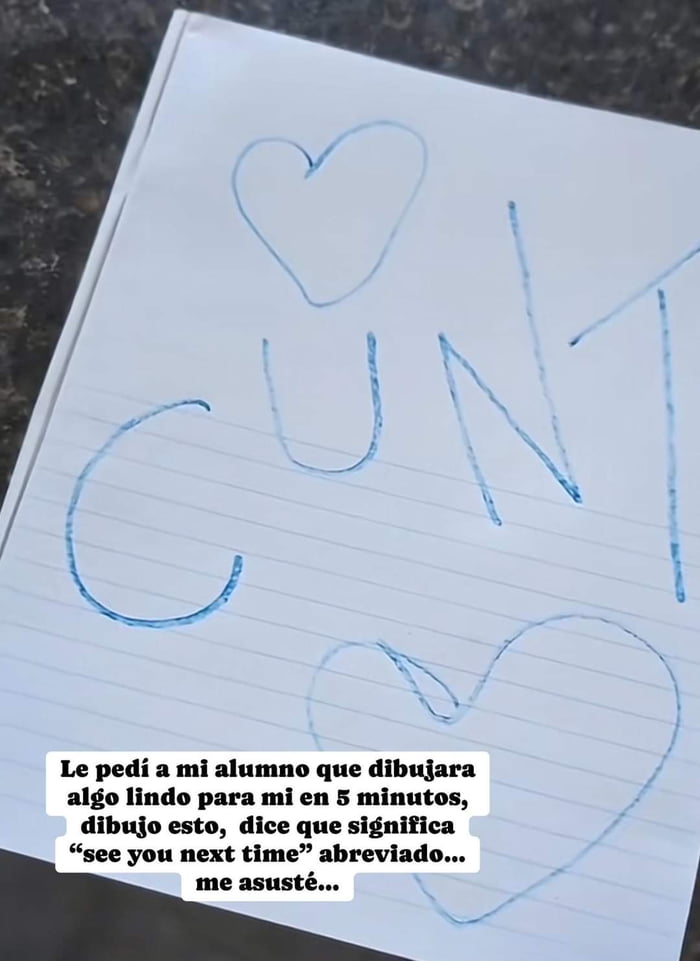 CUNT
Le pedí a mi alumno que dibujara
algo lindo para mi en 5 minutos,
dibujo esto, dice que significa
“see you next time” abreviado...
me asusté...